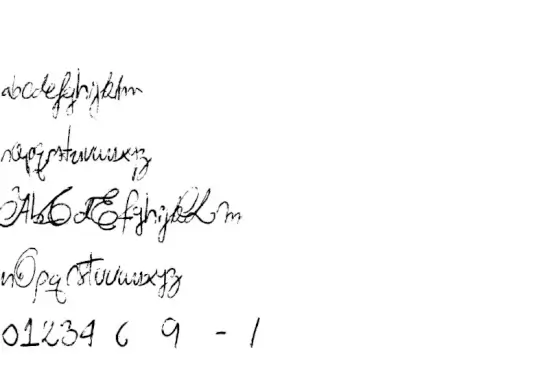 abcdefghijklm
nopqrstuvwxyz
AbCdEfghijkLm
nOpqrstuvwxyz
01234 6 9 - /